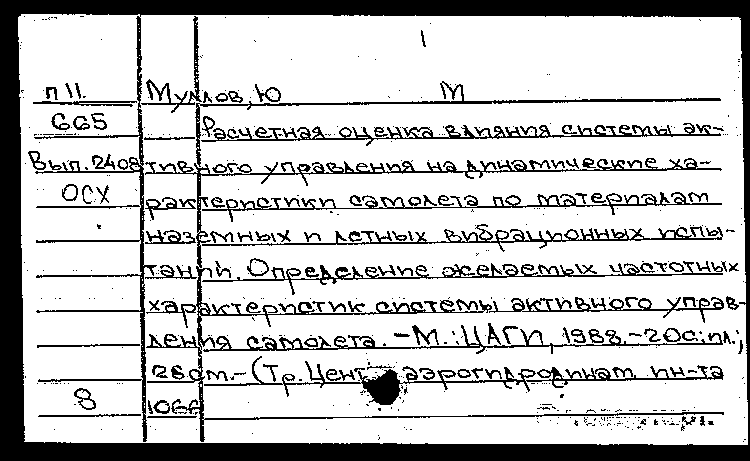 1
п 11. Муллов, Ю М
665 Расчетная оценка влияния системы ак-
Вып. 2408 тивного управления на динамические ха-
ОСХ рактеристики самолета по материалам
наземных и летных вибрационных испы-
таний. Определение желаемых частотных
характеристик системы активного управ-
ления самолета. - М.: ЦАГИ, 1988. - 20с: ил.;
26 см. - (Тр. Цент аэрогидродинам ин-та
8 1066